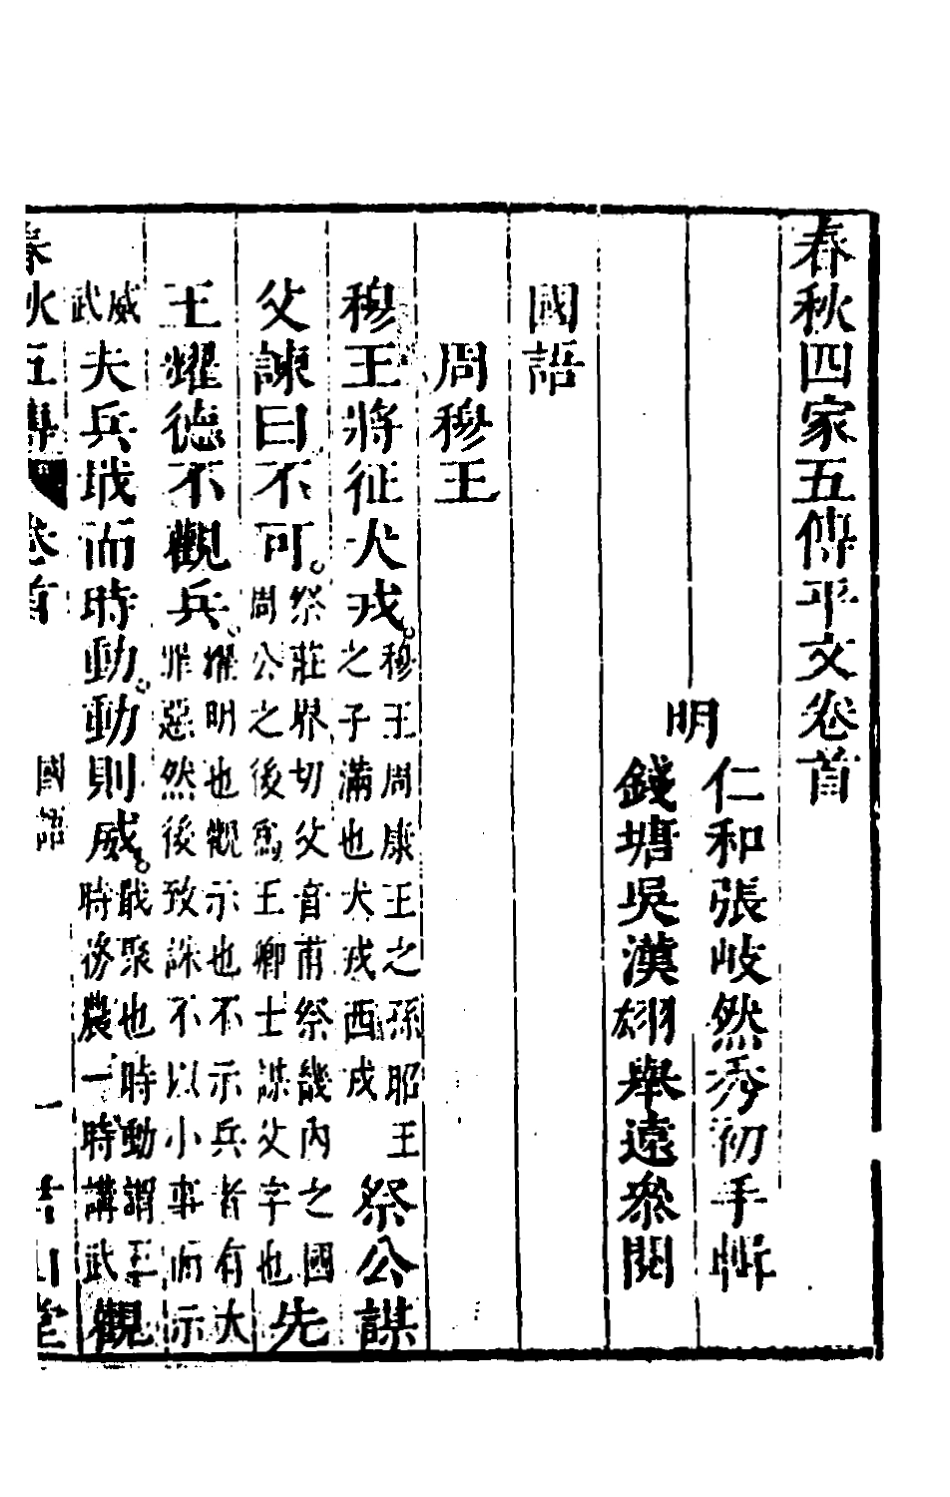 春秋四家五傳平文卷首
明
仁和張岐然秀初手輯
錢塘吳漢翃舉遠叅閱
國語
周穆王
穆王將征犬戎。穆王周康王之孫昭王之子滿也犬戎西戎祭公謀
父諫曰不可。祭莊界切父音甫祭畿內之國周公之後爲王卿士謀父字也先
王耀德不觀兵。耀明也觀示也不示兵者有大罪惡然後致誅不以小事而示
威武夫兵戢而時動。動則威。戢聚也時動謂三時務農一時講武觀
春秋五傳卷首 國語 一 山堂